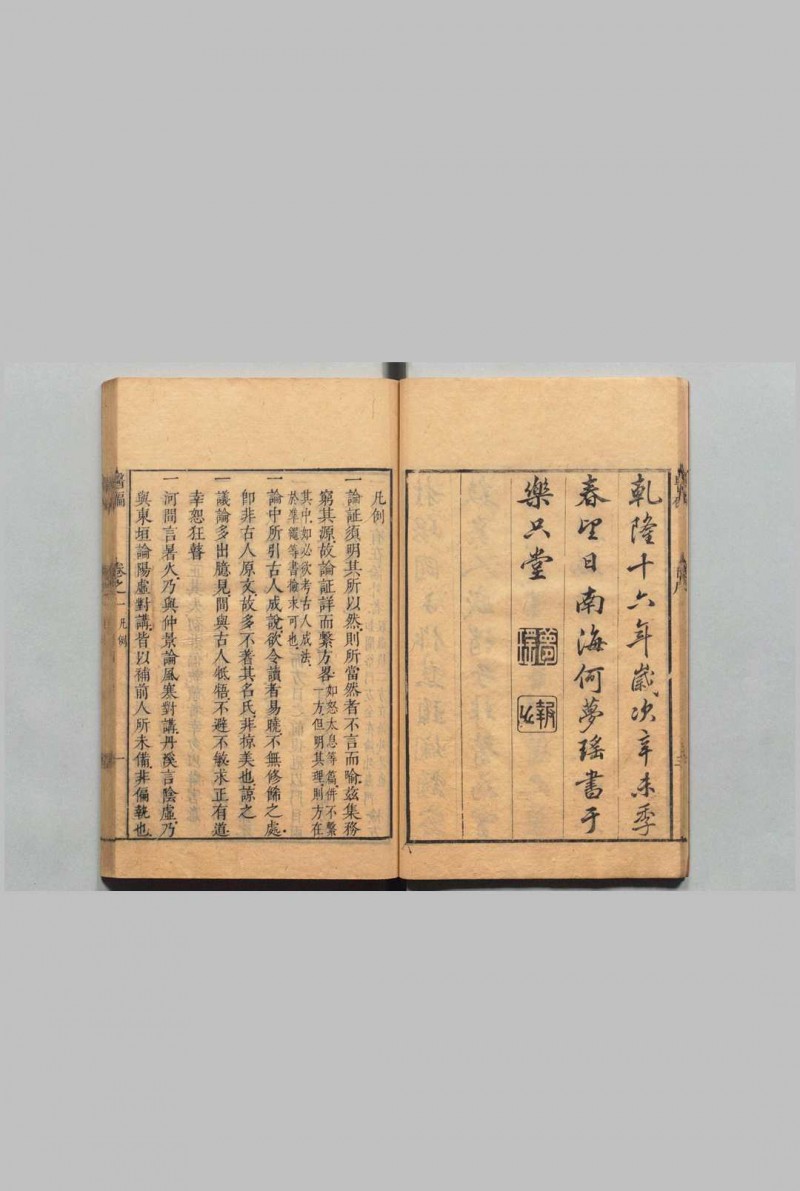 乾隆十六年歲次辛未季
春望日南海何夢瑤書于
樂只堂
凡例
一論証須明其所以然則所當然者不言而喻茲集務
窮其源故論証詳而繫方畧如怒太息等篇併不繫一方但明其理則方在
其中如必欲考古人成法於準繩等書檢求可也
一論中所引古人成說欲令讀者易曉不無修飾之處
卽非古人原文故多不著其名氏非掠美也諒之
一議論多出臆見間與古人牴牾不避不敏求正有道
幸恕狂瞽
一河間言暑火乃與仲景論風寒對講丹溪言陰虛乃
與東垣論陽虛對講皆以補前人所未備非偏執也
醫碥 卷之一 凡例 一